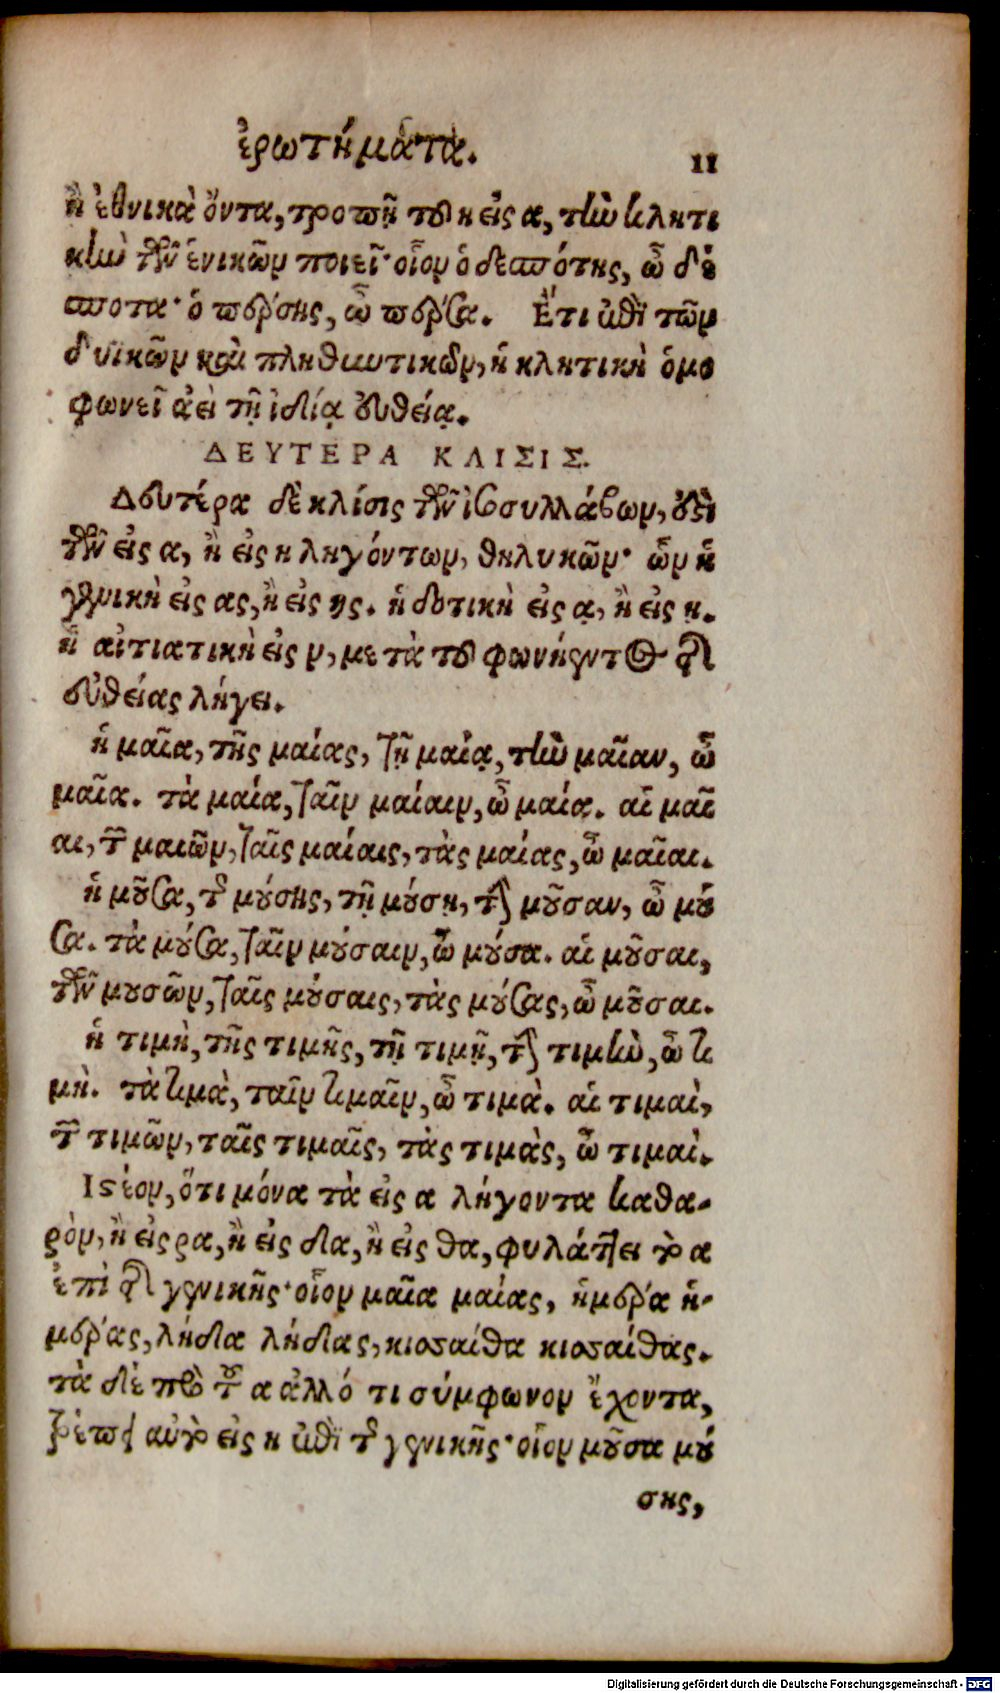 ἐρωτήματα. 11
ἢ ἐθνικὰ ὄντα, τροπῇ τοῦ η εἰς α, τὴν κλητι
κὴν τῶν ἑνικῶν ποιεῖ· οἷον ὁ δεσπότης, ὦ δέ
σποτα· ὁ πέρσης, ὦ πέρσα. Ἔτι ἐπὶ τῶν
δυϊκῶν καὶ πληθυντικῶν, ἡ κλητικὴ ὁμο
φωνεῖ ἀεὶ τῇ ἰδίᾳ εὐθείᾳ.
ΔΕΥΤΕΡΑ ΚΛΙΣΙΣ.
Δευτέρα δὲ κλίσις τῶν ἰσοσυλλάβων, ἐστὶ
τῶν εἰς α, ἢ εἰς η ληγόντων, θηλυκῶν· ὧν ἡ
γενικὴ εἰς ας, ἢ εἰς ης. ἡ δοτικὴ εἰς ᾳ, ἢ εἰς ῃ.
ἡ αἰτιατικὴ εἰς ν, μετὰ τοῦ φωνήεντος τῆς
εὐθείας λήγει.
ἡ μαῖα, τῆς μαίας, τῇ μαίᾳ, τὴν μαῖαν, ὦ
μαῖα. τὰ μαία, ταῖν μαίαιν, ὦ μαία. αἱ μαῖ
αι, τῶν μαιῶν, ταῖς μαίαις, τὰς μαίας, ὦ μαῖαι.
ἡ μοῦσα, τῆς μούσης, τῇ μούσῃ, τὴν μοῦσαν, ὦ μοῦ
σα. τὰ μούσα, ταῖν μούσαιν, ὦ μούσα. αἱ μοῦσαι,
τῶν μουσῶν, ταῖς μούσαις, τὰς μούσας, ὦ μοῦσαι.
ἡ τιμὴ, τῆς τιμῆς, τῇ τιμῇ, τὴν τιμὴν, ὦ τι
μὴ. τὰ τιμὰ, ταῖν τιμαῖν, ὦ τιμὰ. αἱ τιμαὶ,
τῶν τιμῶν, ταῖς τιμαῖς, τὰς τιμὰς, ὦ τιμαὶ.
Ἰστέον, ὅτι μόνα τὰ εἰς α λήγοντα καθα-
ρὸν, ἢ εἰς ρα, ἢ εἰς δα, ἢ εἰς θα, φυλάττει τὸ α
ἐπὶ τῆς γενικῆς· οἷον μαῖα μαίας, ἡμέρα ἡ-
μέρας, λήδα λήδας, κισσαίθα κισσαίθας.
τὰ δὲ πρὸ τοῦ α ἄλλό τι σύμφωνον ἔχοντα,
τρέπει αὐτὸ εἰς η ἐπὶ τῆς γενικῆς· οἷον μοῦσα μού
σης,
Digitalisierung gefördert durch die Deutsche Forschungsgemeinschaft - DFG